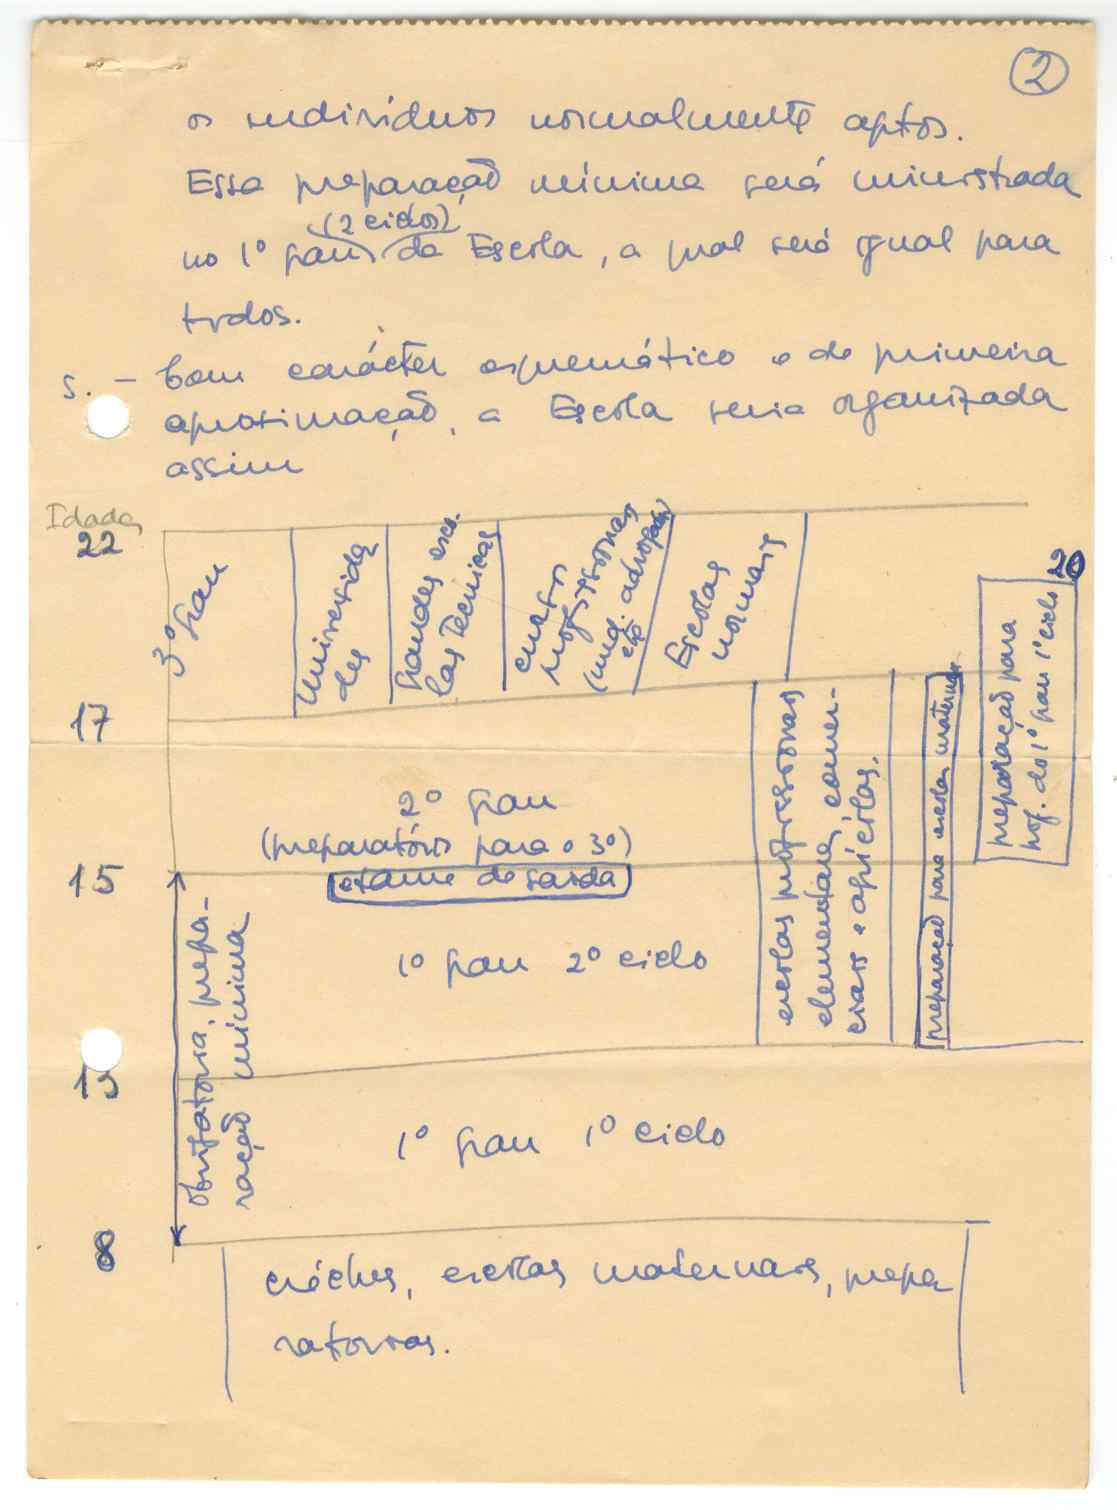 2
os indivíduos normalmente aptos.
Essa preparação mínima será ministrada
(2 ciclos)
no 1º grau da Escola, a qual será igual para
todos.
5. – Com carácter esquemático e de primeira
aproximação, a Escola seria organizada
assim
Idades
22
3º grau
Universida
des
Grandes esco-
las Técnicas
Escolas
normais
20
preparação para
prof. do 1º grau 1º ciclo
17
2º grau
(preparatório para o 3º)
escolas profissionais
elementares, comer-
ciais e agrícolas.
preparação para escolas maternais
15
exame de saída
1º grau 2º ciclo
obrigatória, prepa-
ração mínima
13
1º grau 1º ciclo
8
créches, escolas maternais, prepa
ratorias.